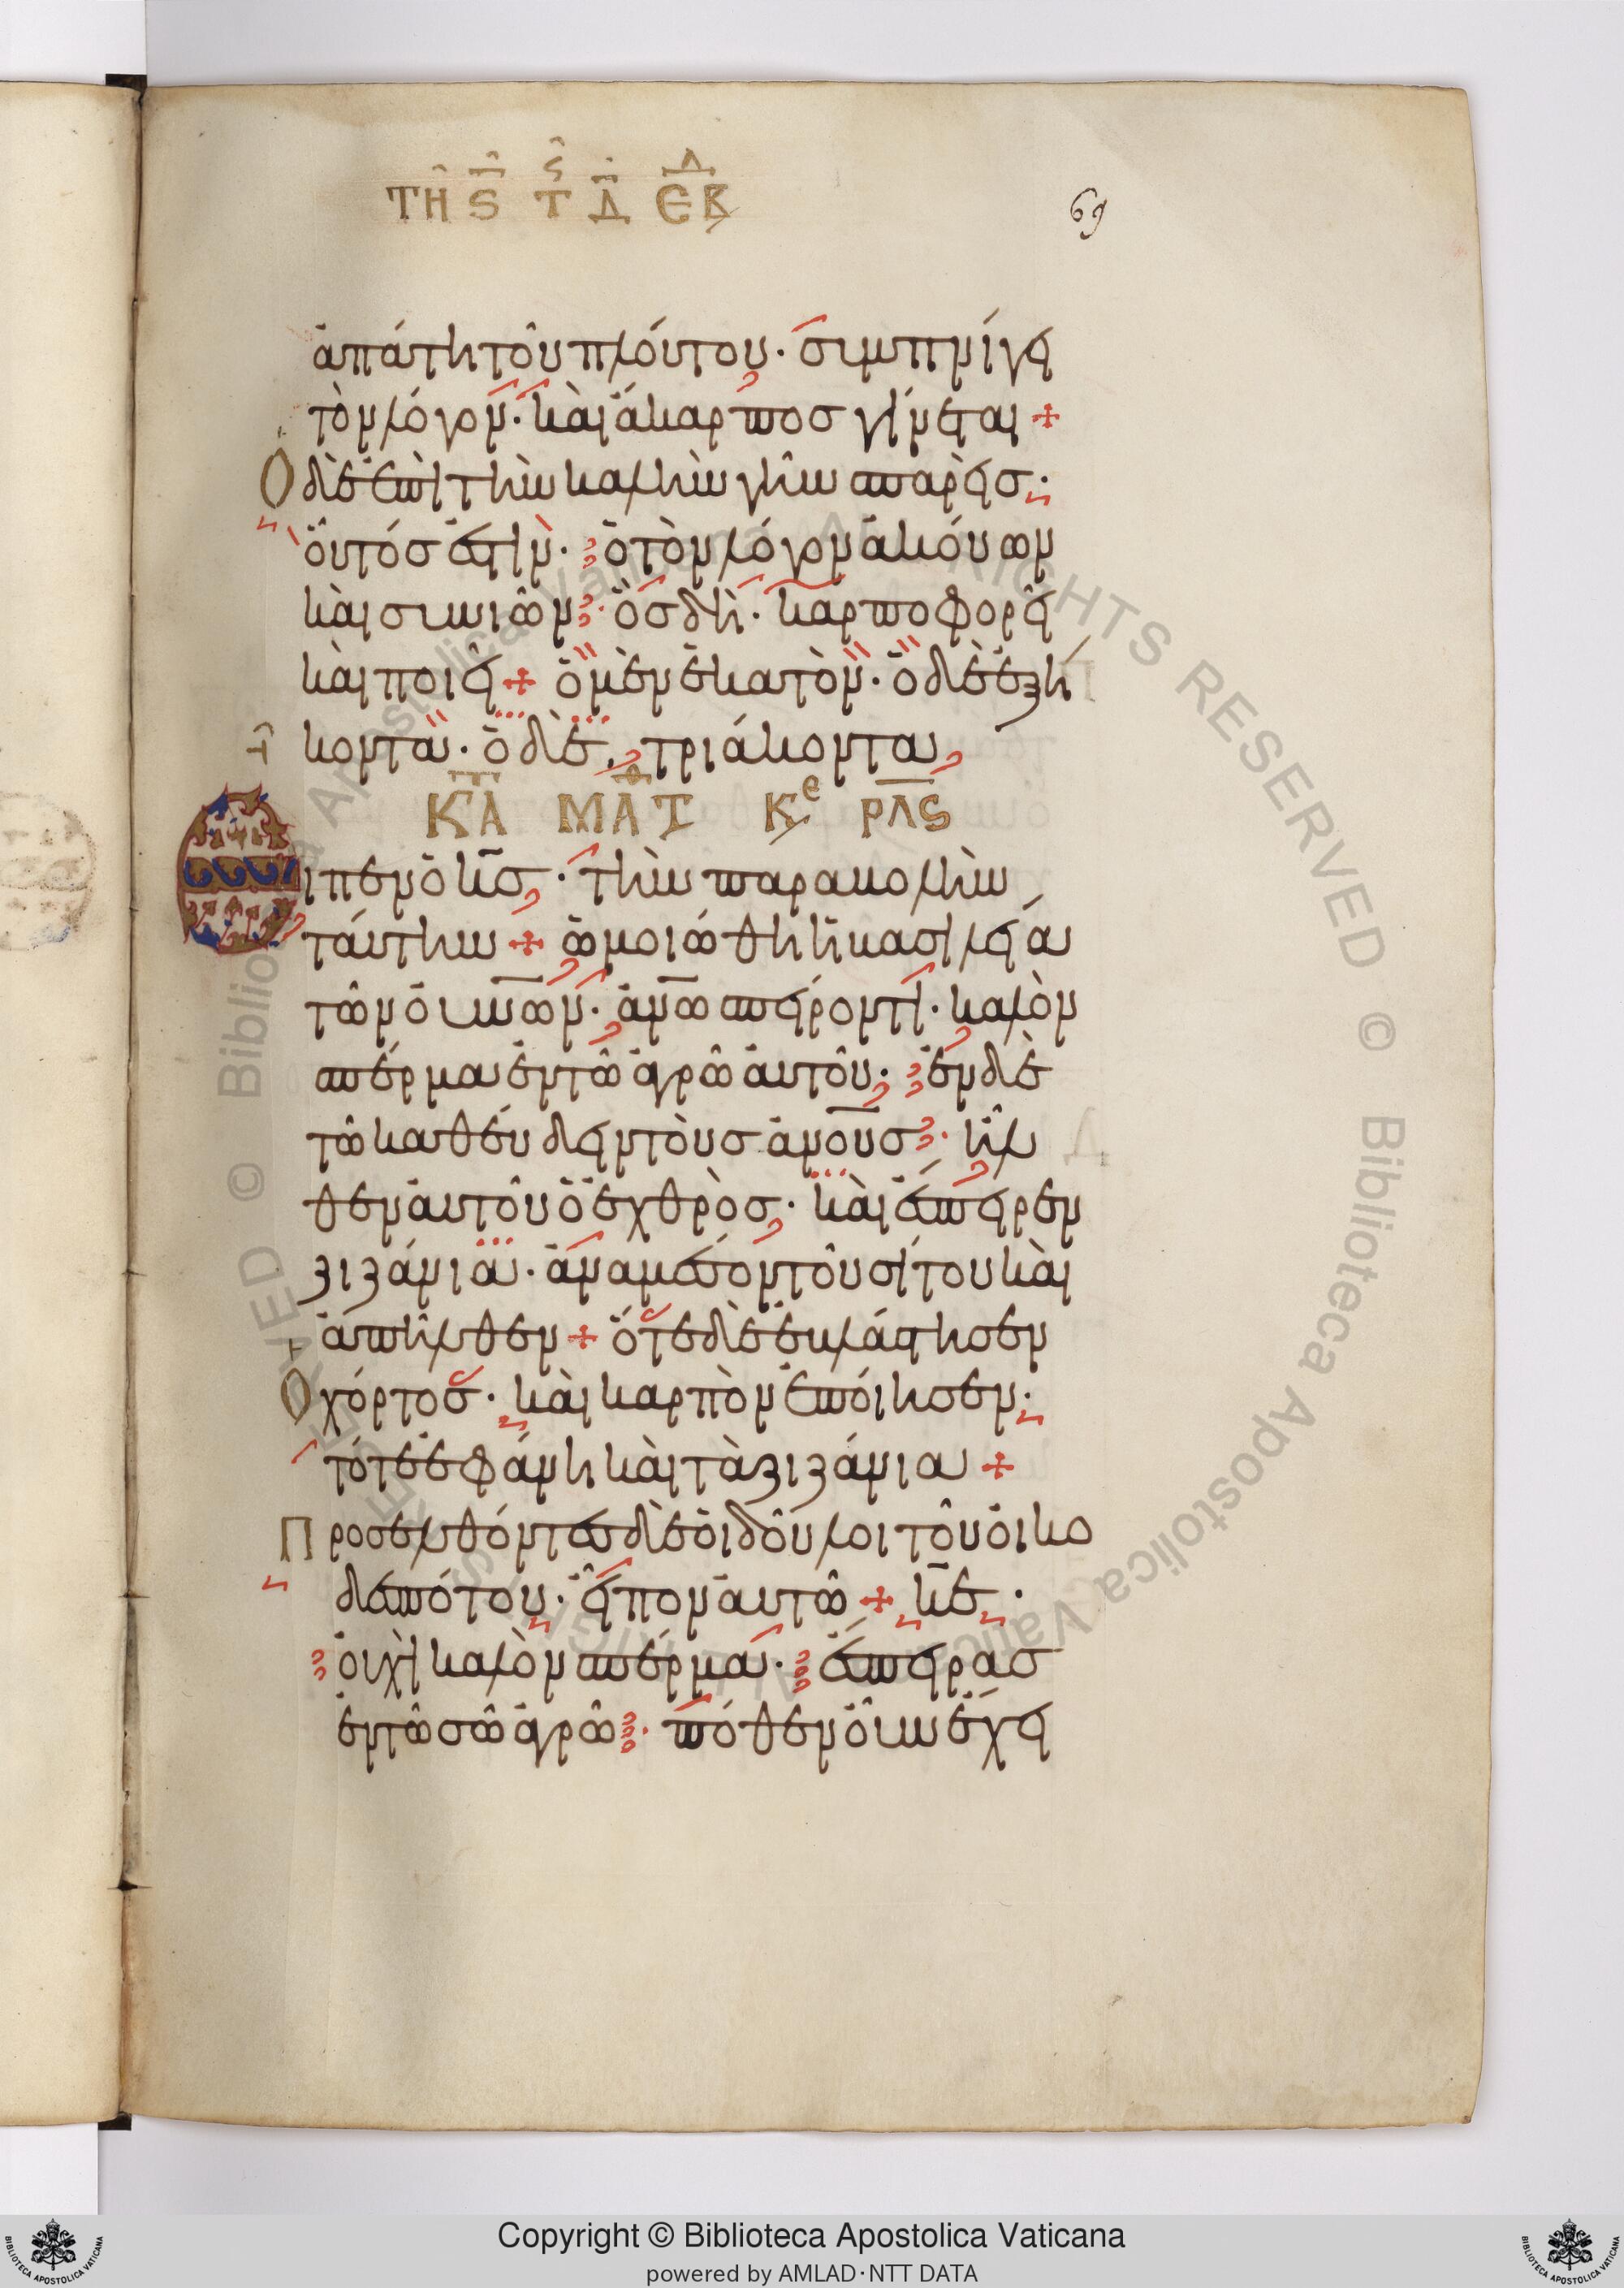 ΤΗ Ϛ Τ Δ ΕΒ
69
ἀπάτη τοῦ πλούτου· συμπνίγει
τὸν λόγον· καὶ ἄκαρπος γίνεται +
Ὁ δὲ ἐπὶ τὴν καλὴν γῆν σπαρεὶς·
οὗτός ἐστιν· ὁ τὸν λόγον ἀκούων
καὶ συνιῶν· ὃς δὴ· καρποφορεῖ
καὶ ποιεῖ + ὁ μὲν ἑκατὸν· ὁ δὲ ἑξή
κοντα· ὁ δὲ, τριάκοντα,
ΚΑ ΜΑΤ Κε ΡΛϚ
ιπεν ὁ κς, · τὴν παραβολὴν
ταύτην + ὡμοιώθη ἡ βασιλεία
τῶν οὐνων· ἀνω σπείροντι· καλὸν
σπέρμα ἐν τῶ ἀγρῶ αὐτοῦ· ἐν δὲ
τῶ καθεύδειν τοὺς ἀνους· ἦλ
θεν αὐτοῦ ὁ ἐχθρὸς· καὶ ἔσπειρεν
ζιζάνια· ἀναμέσον τοῦ σίτου καὶ
ἀπῆλθεν + ὅτε δὲ ἐβλάστησεν
Ὁ χόρτος· καὶ καρπὸν ἐποίησεν·
τότε ἐφάνη καὶ τὰ ζιζάνια +
Προσελθόντες δὲ οἱ δοῦλοι τοῦ οἰκο
δεσπότου· εἶπον αὐτῶ + κε ·
οὐχὶ καλὸν σπέρμα· ἔσπειρας
ἐν τῶ σῶ ἀγρῶ· πόθεν οὖν ἔχει
Copyright © Biblioteca Apostolica Vaticana
powered by AMLAD·NTT DATA